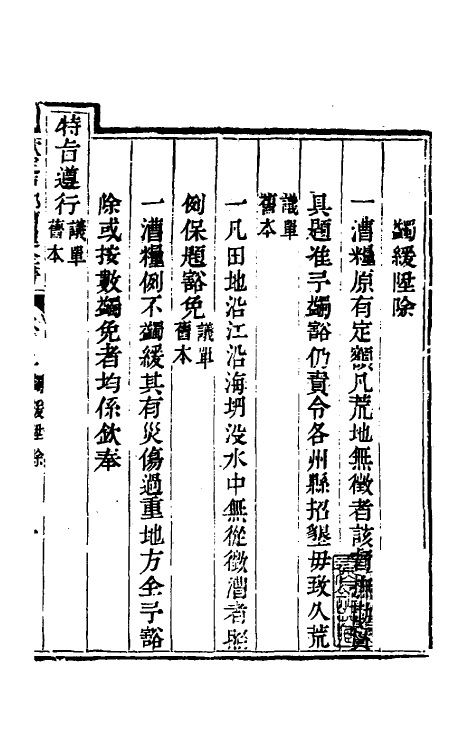 蠲緩陞除
一漕糧原有定額凡荒地無徵者該督撫勘實
具題准予蠲豁仍責令各州縣招墾毋致久荒
議單
舊本
一凡田地沿江沿海坍沒水中無從徵漕者照
例保題豁免議單
舊本
一漕糧例不蠲緩其有災傷過重地方全予豁
除或按數蠲免者均係欽奉
特旨遵行議單
舊本
蠲緩陞除